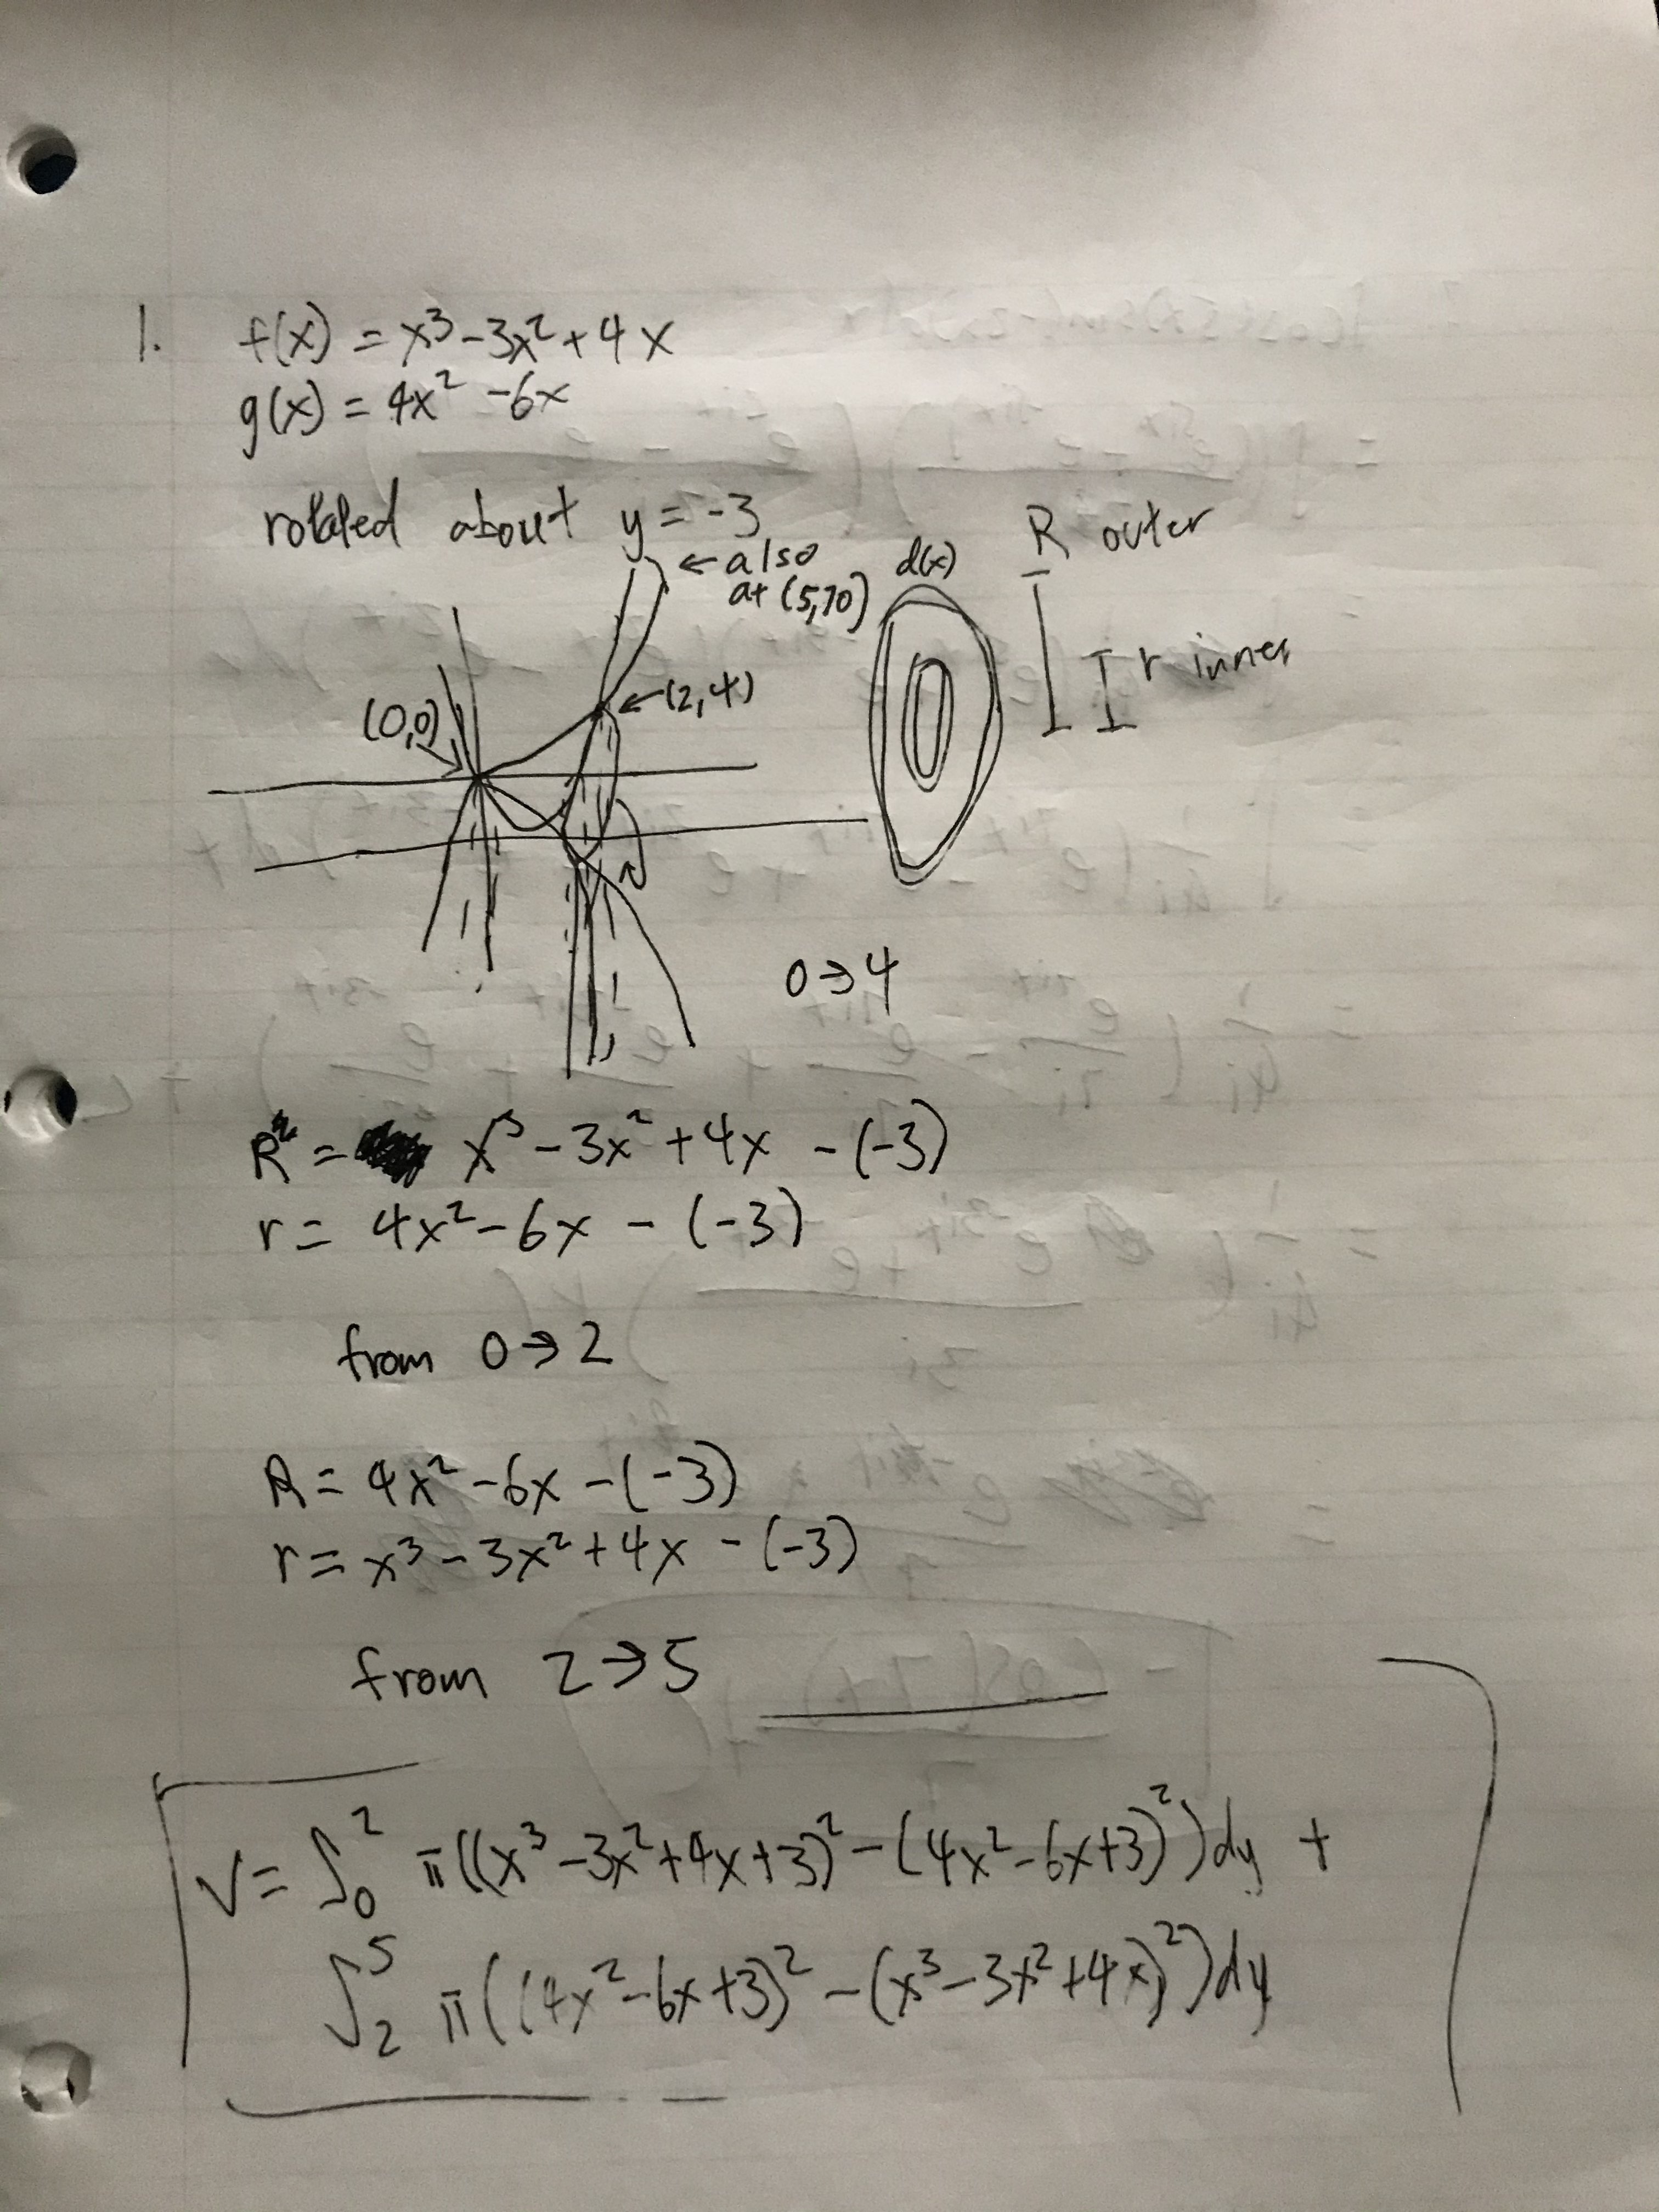 1. f(x) = x³ - 3x² + 4x
g(x) = 4x² - 6x
rotated about y = -3
← also
at (5,70)
d(x)
R outer
r inner
(0,0)
←(2,4)
0→4
R² = x³ - 3x² + 4x - (-3)
r = 4x² - 6x - (-3)
from 0→2
R = 4x² - 6x - (-3)
r = x³ - 3x² + 4x - (-3)
from 2→5
V = ∫₀² π((x³ - 3x² + 4x + 3)² - (4x² - 6x + 3)²)dy +
∫₂⁵ π((4x² - 6x + 3)² - (x³ - 3x² + 4x)²)dy